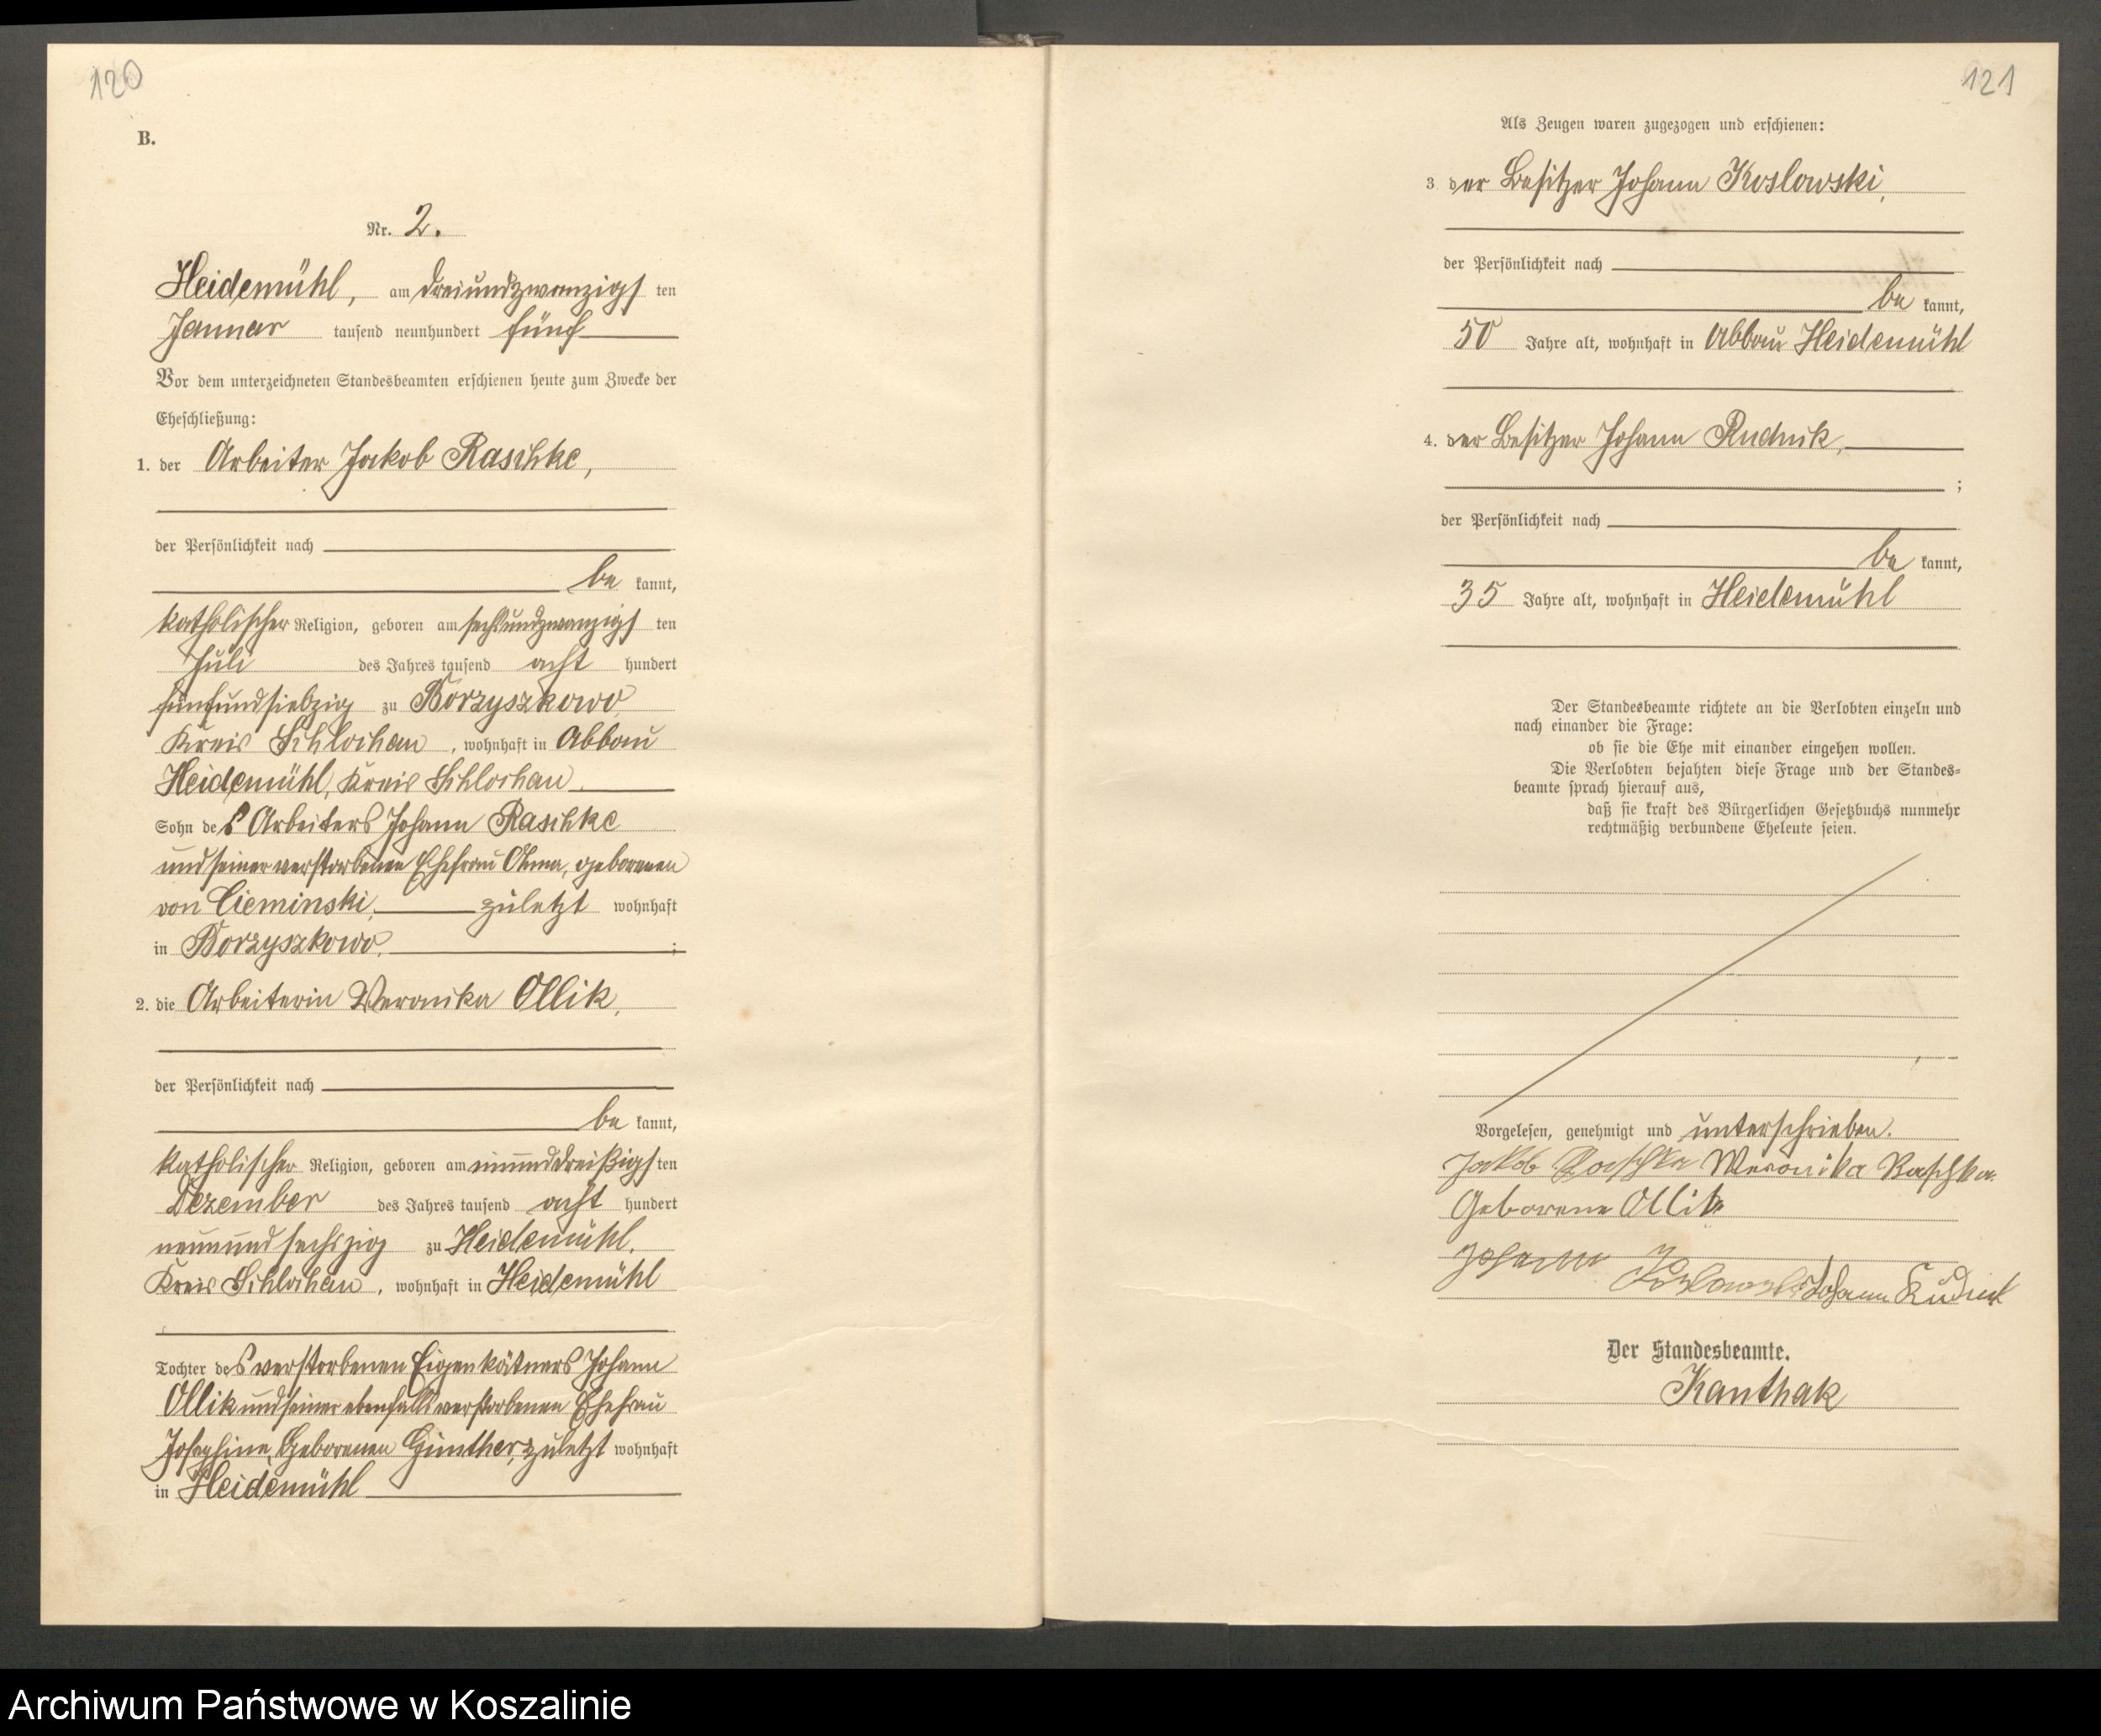 120
B.
Nr. 2.
Heidemühl, am dreiundzwanzigsten
Januar tausend neunhundert fünf
Vor dem unterzeichneten Standesbeamten erschienen heute zum Zwecke der
Eheschließung:
1. der Arbeiter Jakob Raschke,
der Persönlichkeit nach
be kannt,
katholischer Religion, geboren am sechsundzwanzigsten
Juli des Jahres tausend acht hundert
fünfundsiebzig zu Borzyszkowo,
Kreis Schlochau, wohnhaft in Abbau
Heidemühl, Kreis Schlochau
Sohn des Arbeiters Johann Raschke
und seiner verstorbenen Ehefrau Anna, geborenen
von Cieminski, zuletzt wohnhaft
in Borzyszkowo, ;
2. die Arbeiterin Weronika Ollik,
der Persönlichkeit nach
be kannt,
katholischer Religion, geboren am einunddreißigsten
Dezember des Jahres tausend acht hundert
neunundsechszig zu Heidemühl,
Kreis Schlochau, wohnhaft in Heidemühl
Tochter des verstorbenen Eigenkätners Johann
Ollik und seiner ebenfalls verstorbenen Ehefrau
Josephine, Geborenen Günther, zuletzt wohnhaft
in Heidemühl
121
Als Zeugen waren zugezogen und erschienen:
3. der Besitzer Johann Koslowski,
der Persönlichkeit nach
be kannt,
50 Jahre alt, wohnhaft in Abbau Heidemühl
4. der Besitzer Johann Rudnik,
;
der Persönlichkeit nach
be kannt,
35 Jahre alt, wohnhaft in Heidemühl
Der Standesbeamte richtete an die Verlobten einzeln und
nach einander die Frage:
ob sie die Ehe mit einander eingehen wollen.
Die Verlobten bejahten diese Frage und der Standes-
beamte sprach hierauf aus,
daß sie kraft des Bürgerlichen Gesetzbuchs nunmehr
rechtmäßig verbundene Eheleute seien.
Vorgelesen, genehmigt und unterschrieben.
Jakob Raschke Weronika Raschke
Geborene Ollik
Johann Koslowski Johann Rudnik
Der Standesbeamte.
Kanthak
Archiwum Państwowe w Koszalinie